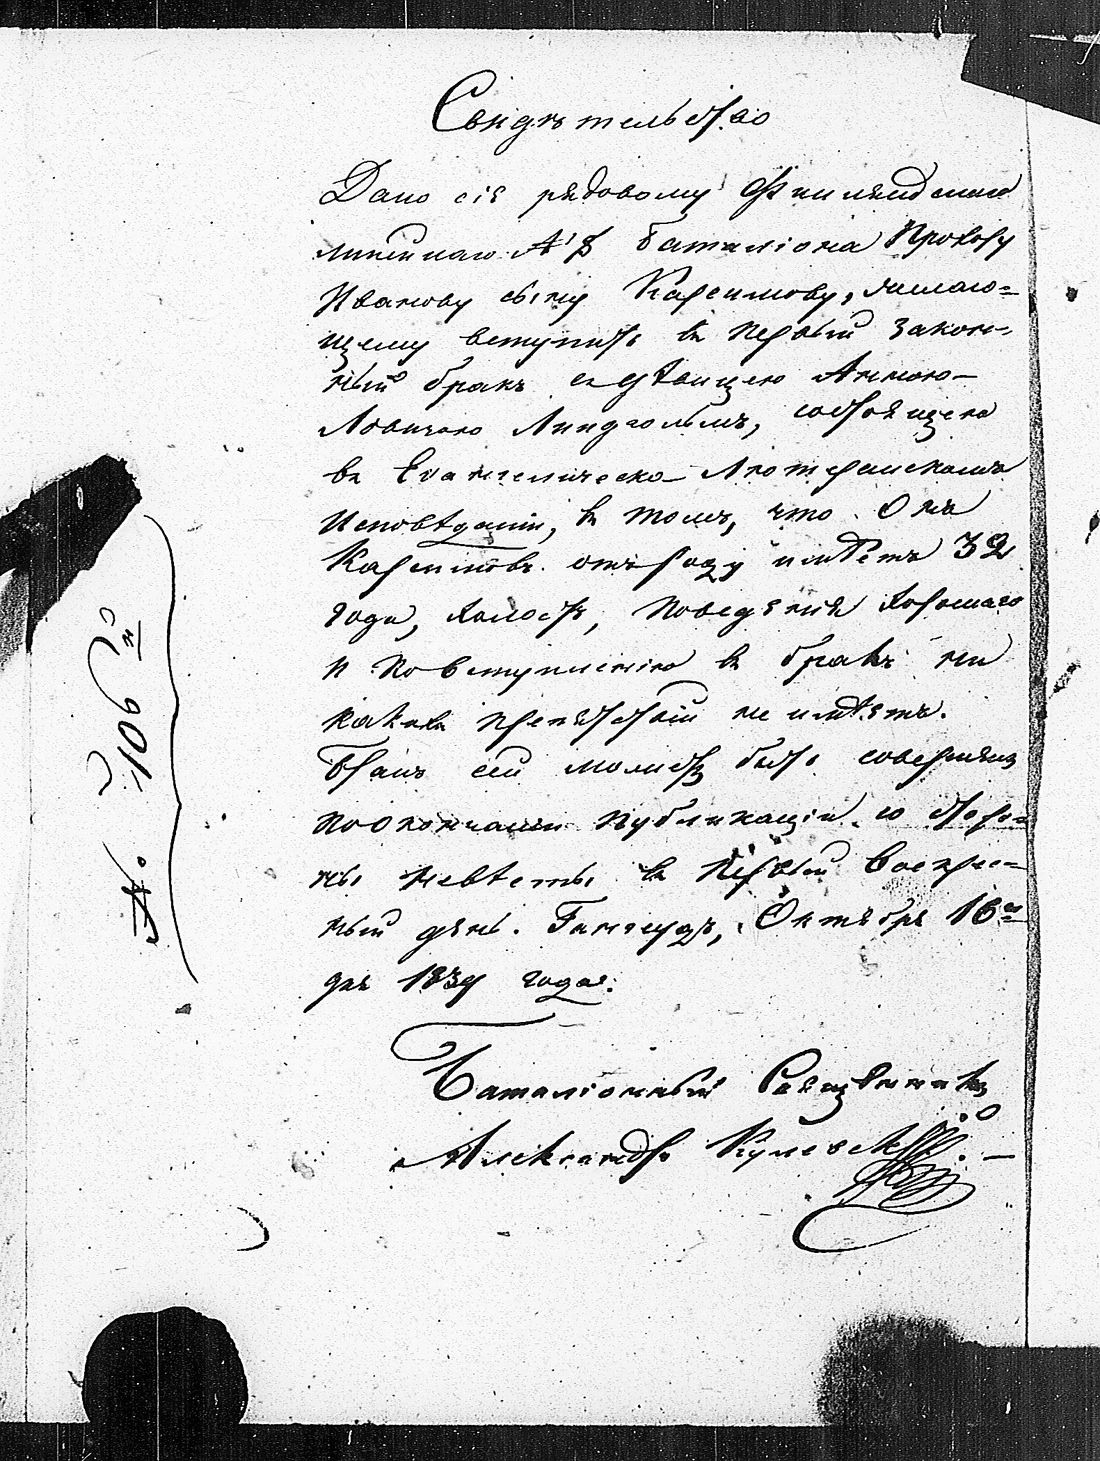 Свидѣтельство
Дано сіе рядовому Финляндскаго
линейнаго № 8 баталіона Прохору
Иванову сыну Касимову, желаю=
щему вступить въ первый закон-
ный бракъ съ дѣвицею Анною
Ловизою Линдгольмъ, состоящею
въ Евангелическо-Лютеранскомъ
Исповѣданіи, въ томъ, что Онъ
Касимовъ отъ роду имѣетъ 32
года, холостъ, поведенія хорошаго
и по вступленію въ бракъ ни
какихъ препятствій не имѣетъ.
Бракъ сей можетъ быть совершенъ
по окончаніи публикаціи со сторо=
ны невѣсты въ первый воскрес=
ный день. Гангеудъ, Октября 16го
дня 1839 года.
Баталіонный Священникъ
Александръ
№. 106й